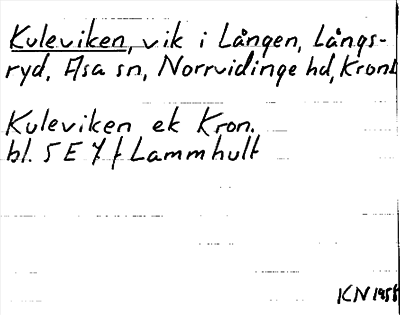 Kuleviken, vik i Lången, Långs-
ryd, Asa sn, Norrvidinge hd, Kronl
Kuleviken ek Kron.
bl. 5 E 7 f Lammhult
KN 1958